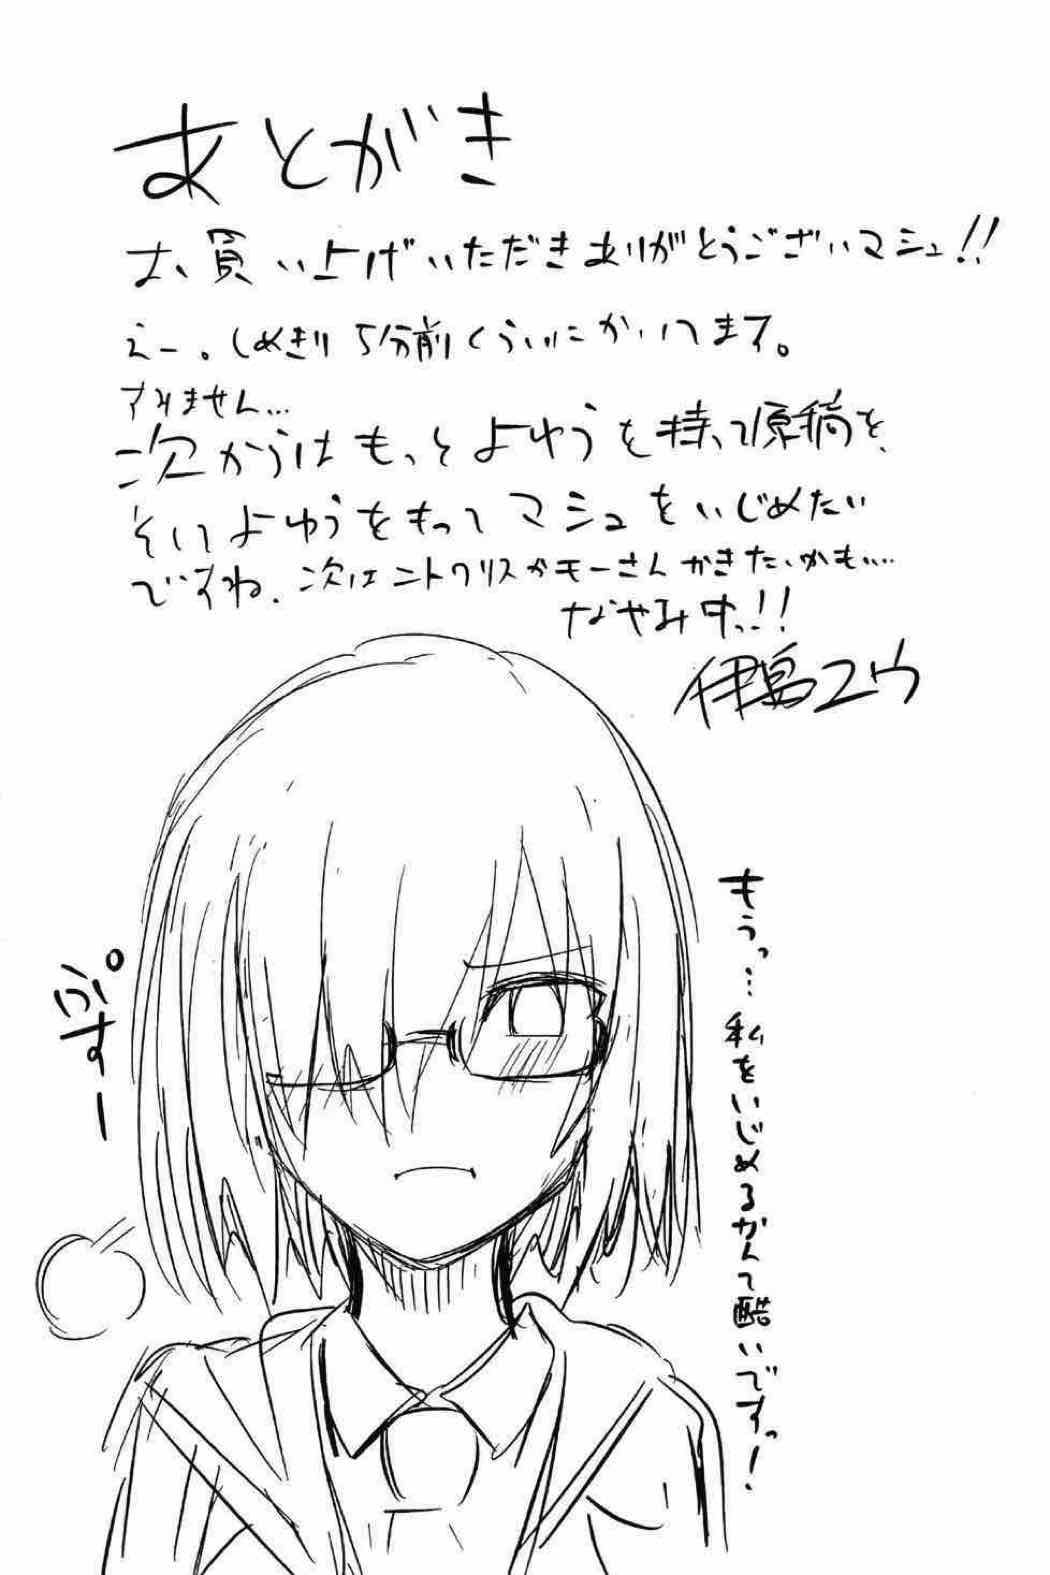 あとがき
お買い上げいただきありがとうございマシュ!!
えー。しめきり5分前くらいにかいてます。
すみません…
次からはもっとよゆうを持って原稿を、
そしてよゆうをもってマシュをいじめたい
ですね。次はニトクリスかモーさんかきたいかも……
なやみ中っ!!
伊島ユウ
もうっ…私をいじめるなんて酷いですっ!
ぷすー